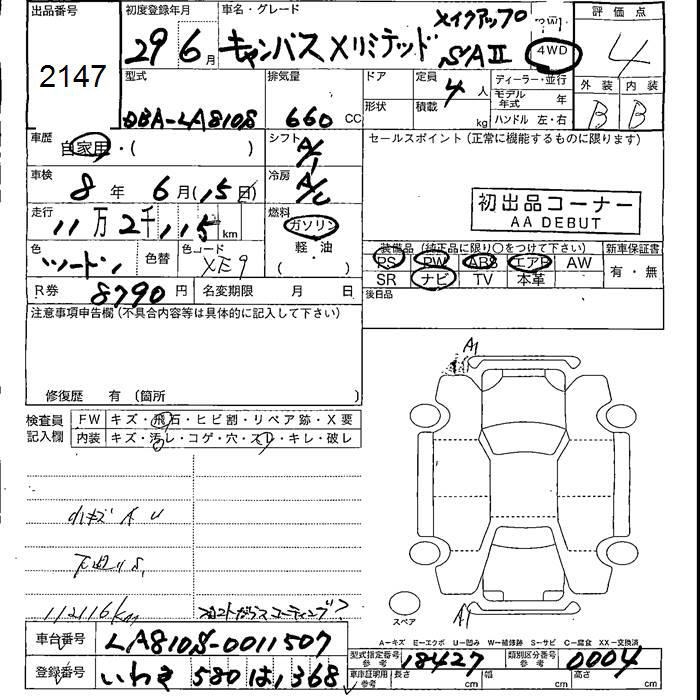 出品番号 初度登録年月 車名・グレード 評価点
2147 29 6月 キャンバス Xリミテッド メイクアップ SAⅡ 4WD 4
型式 排気量 ドア 定員 4人 ディーラー・並行 外装 内装
DBA-LA810S 660 CC 形状 積載 kg モデル年式 年 ハンドル 左・右 B B
車歴 自家用・( ) シフト A/ セールスポイント(正常に機能するものに限ります)
車検 8年 6月(15日) 冷房 A/C
初出品コーナー
AA DEBUT
走行 11万2千115km 燃料 ガソリン 軽・油 ( )
色 ツートン 色替 色コード XE9
装備品(純正品に限り○をつけて下さい) 新車保証書
PS PW ABS エアB AW 有・無
SR ナビ TV 本革
R券 8790円 名変期限 月 日 後日品
注意事項申告欄(不具合内容等は具体的に記入して下さい)
修復歴 有 (箇所 )
A1
検査員記入欄 FW キズ・飛石・ヒビ割・リペア跡・X要
内装 キズ・汚レ・コゲ・穴・スレ・キレ・破レ
小キズ A U
下廻りS
112116km フロントガラスコーティング?
スペア A1
A-キズ E-エクボ U-凹み W-補修跡 S-サビ C-腐食 XX-交換済
車台番号 LA810S-0011507 型式指定番号 参考 18427 類別区分番号 参考 0004
登録番号 いわき 580 は 1368 車庫証明用 参考 長さ cm 幅 cm 高さ cm